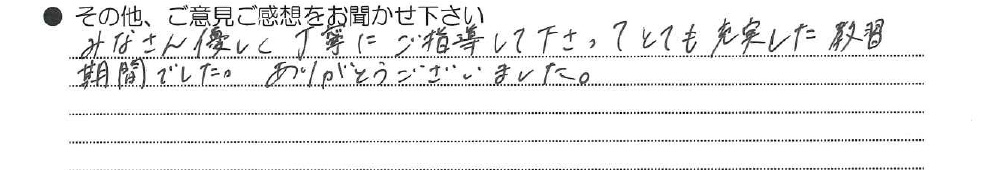 ● その他、ご意見ご感想をお聞かせ下さい
みなさん優しく丁寧にご指導して下さってとても充実した教習
期間でした。ありがとうございました。